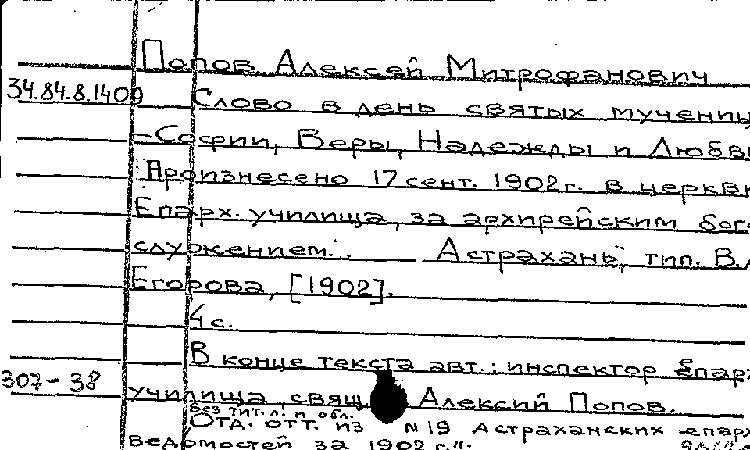 Попов Алексей Митрофанович
34.84.8.1409 Слово в день святых мучениц
-Софии, Веры, Надежды и Любв
Произнесено 17 сент. 1902 г. в церкви
Епарх. училища, за архирейским бого
служением. Астрахань, тип. В.Л
Егорова, [1902].
4 с.
В конце текста авт.: инспектор Епарх
307-38 училища, свящ. Алексий Попов.
Без тит. л. и обл.
Отд. отт. из N 19 Астраханских епарх
ведомостей за 1902 г.".